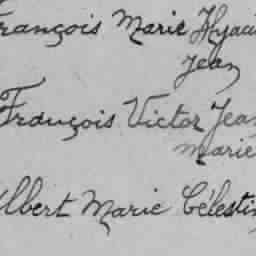 François Marie Hyaci
Jean
François Victor Jean
Marie
Albert Marie Célestin